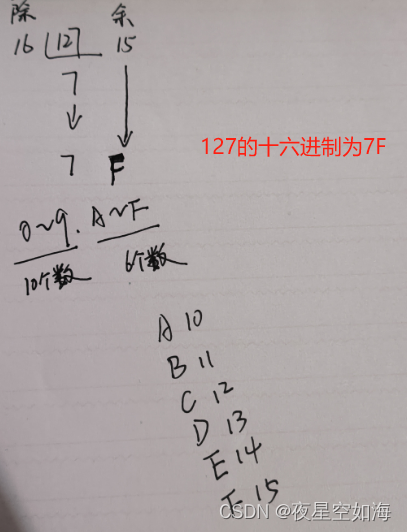 除 余
16 127 15
7
7 F
127的十六进制为7F
0~9. A~F
10个数 6个数
A 10
B 11
C 12
D 13
E 14
F 15
CSDN @夜星空如海